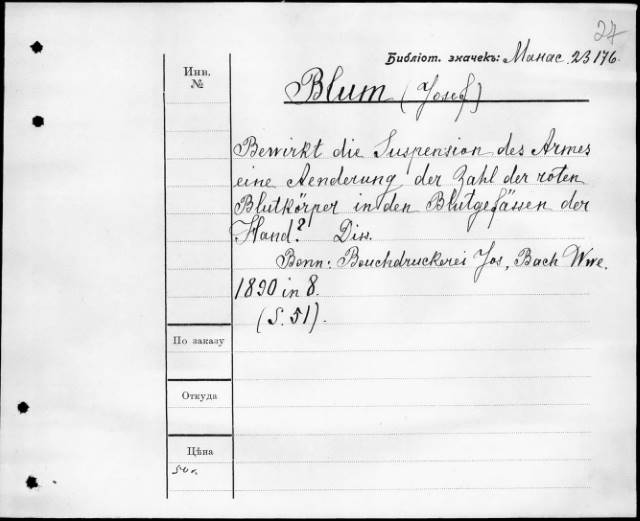 24
Библіот. значекъ: Манас. 23176.
Инв.
№
Blum (Josef)
Bewirkt die Suspension des Armes
eine Aenderung der Zahl der roten
Blutkörper in den Blutgefässen der
Hand? Diss.
Bonn: Bouchdruckerei Jos. Bach Wwe.
1890 in 8.
(S. 51).
По заказу
Откуда
Цѣна
50 к.